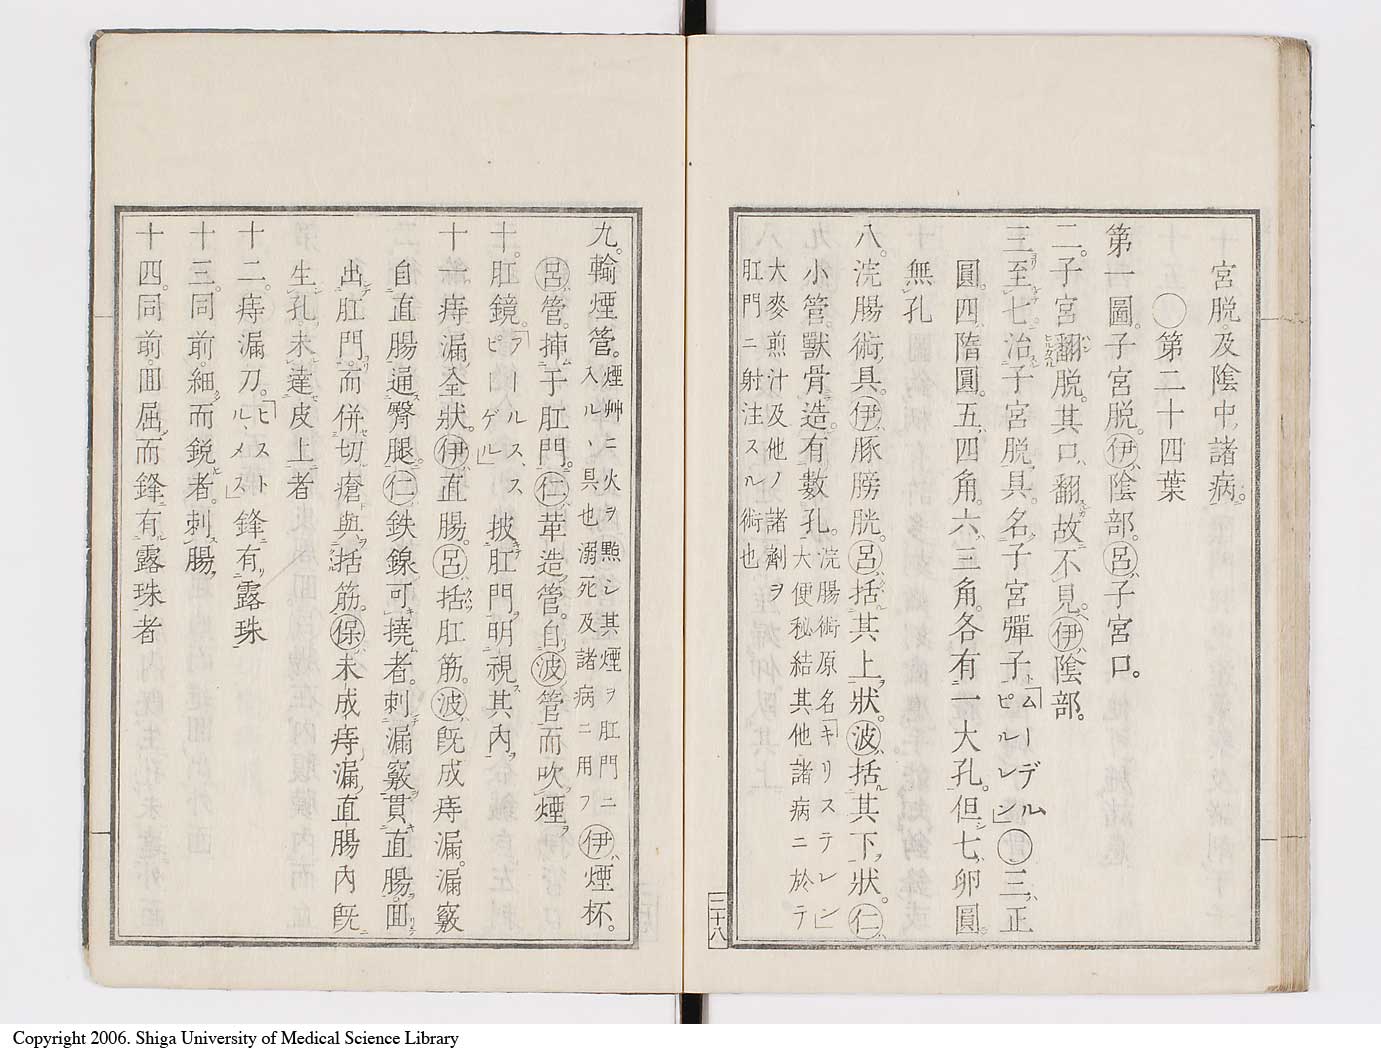 宮脱。及陰中諸病。
◯第二十四葉
第一圖。子宮脱。伊陰部。呂子宮口。
二。子宮翻脱。其口翻故不見。伊陰部。
三至七。治子宮脱具。名子宮彈子「ムーデルピルレン」三正
圓。四隋圓。五四角。六三角。各有一大孔。但七卵圓
無孔
八。浣腸術具。伊豚膀胱。呂括其上狀。波括其下狀。仁
小管。獸骨造。有數孔。浣腸術原名「キリステレン」大便秘結其他諸病ニ於テ
大麥煎汁及他ノ諸劑ヲ肛門ニ射注スル術也
九。輸煙管。煙艸ニ火ヲ點シ其煙ヲ肛門ニ入ルヽ具也溺死及諸病ニ用フ伊煙杯。
呂管。挿于肛門。仁革造管。自波管而吹煙。
十。肛鏡。「フールススピーゲル」披肛門明視其内
十一。痔漏全狀。伊直腸。呂括肛筋。波既成痔漏。漏竅
自直腸通臀腿。仁鉄鎳可撓者。刺漏竅貫直腸。回
出肛門。而併切瘡與括筋。保未成痔漏。直腸内既
生孔未達皮上者
十二。痔漏刀。「ヒストルヽメス」鋒有露珠
十三。同前。細而鋭者。刺腸
十四。同前。回屈而鋒有露珠者
二十八
Copyright 2006. Shiga University of Medical Science Library